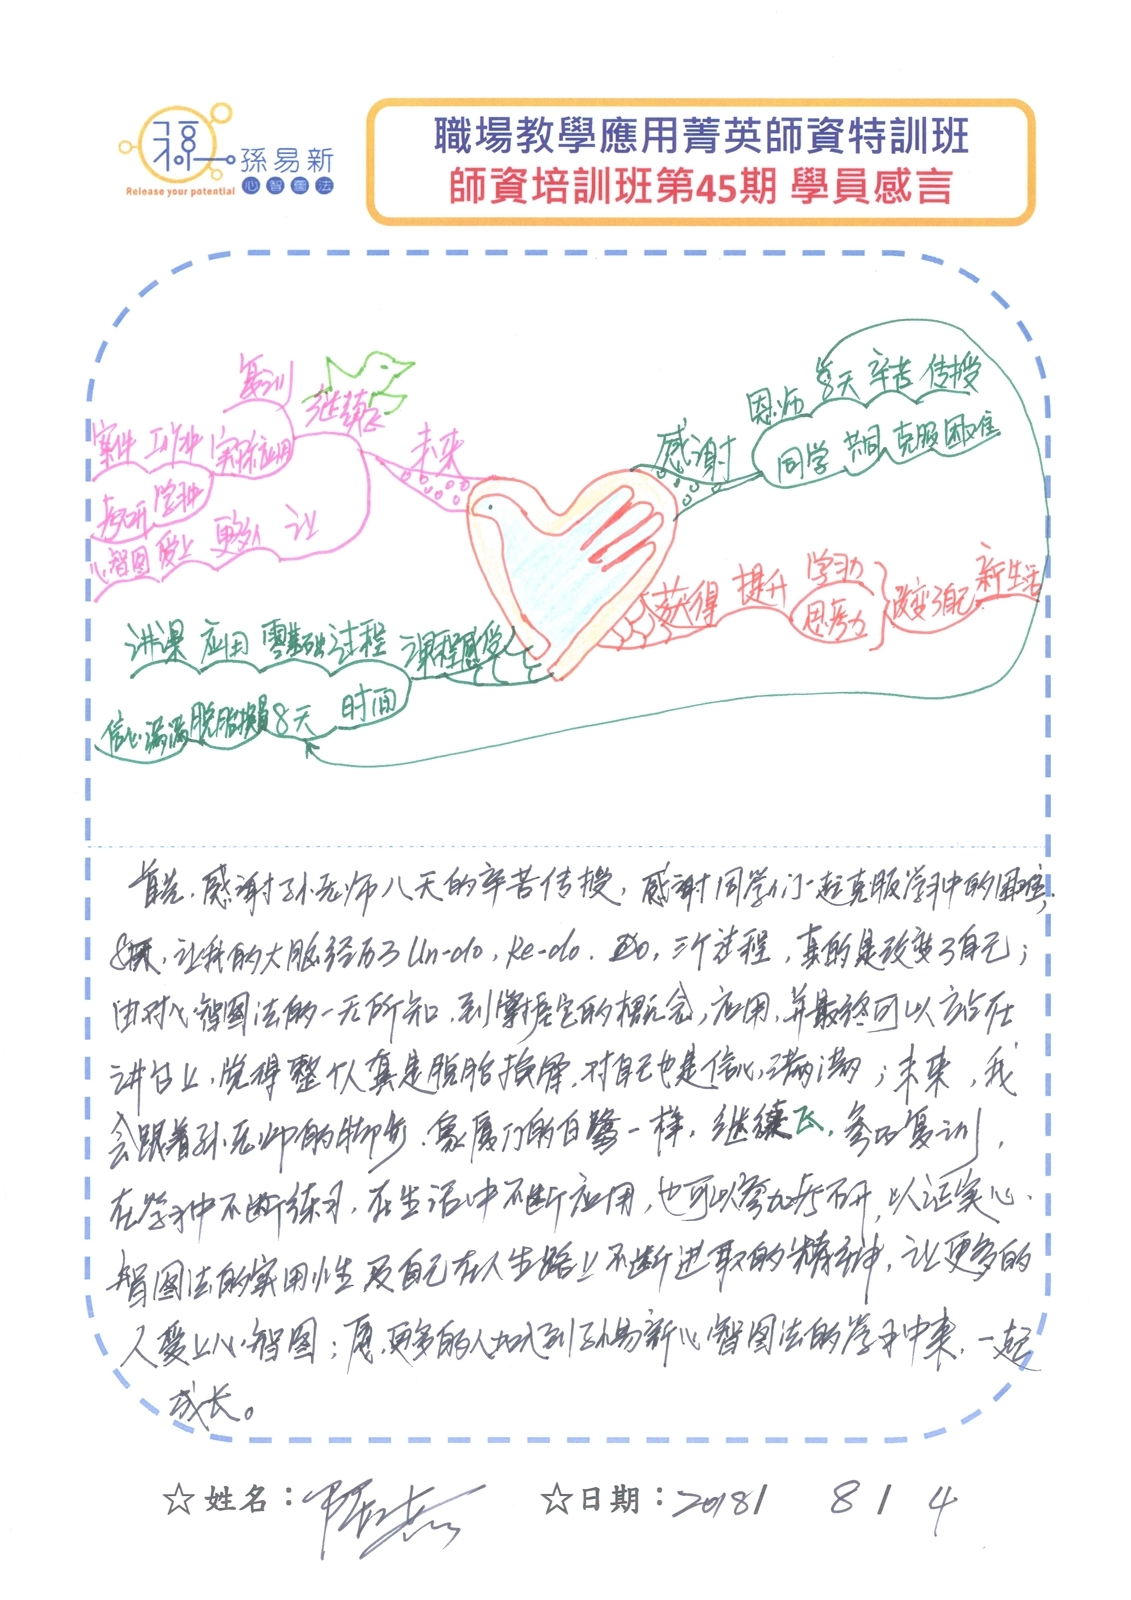 孫易新
心智圖法
Release your potential
職場教學應用菁英師資特訓班
師資培訓班第45期 學員感言
感谢
恩师 8天 辛苦 传授
同学 共同 克服 困难
获得 提升
学习力
思考力
改变了自己 新生活
课程感受
讲课 应用 零基础 过程
信心满满 脱胎换骨 8天 时间
未来
继续飞
复训
案件 工作中 实际应用
考研 学中
心智图 爱上 更多人 让
首先,感谢孙老师八天的辛苦传授,感谢同学们一起克服学习中的困难,
8天,让我的大脑经历了Un-do,Re-do,Do,三个过程,真的是改变了自己;
由对心智图法的一无所知,到掌握它的概念,应用,并最终可以站在
讲台上,觉得整个人真是脱胎换骨,对自己也是信心满满;未来,我
会跟着孙老师的脚步,象厦门的白鹭一样,继续飞,参加复训,
在学习中不断练习,在生活中不断应用,也可以参加考研,以证实心
智图法的实用性及自己在人生路上不断进取的精神,让更多的
人爱上心智图;愿更多的人加入到孙易新心智图法的学习中来,一起
成长。
☆姓名:
☆日期:2018/ 8 / 4